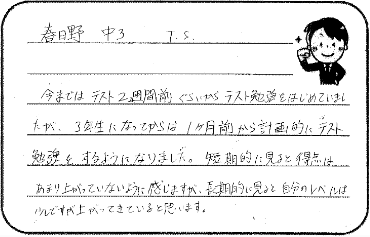 春日野 中3 T.S.
今まではテスト2週間前ぐらいからテスト勉強をはじめていまし
たが、3年生になってからは1ヶ月前から計画的にテスト
勉強をするようになりました。短期的に見ると得点は
あまり上がっていないように感じますが、長期的に見ると自分のレベルは
少しですが上がってきていると思います。